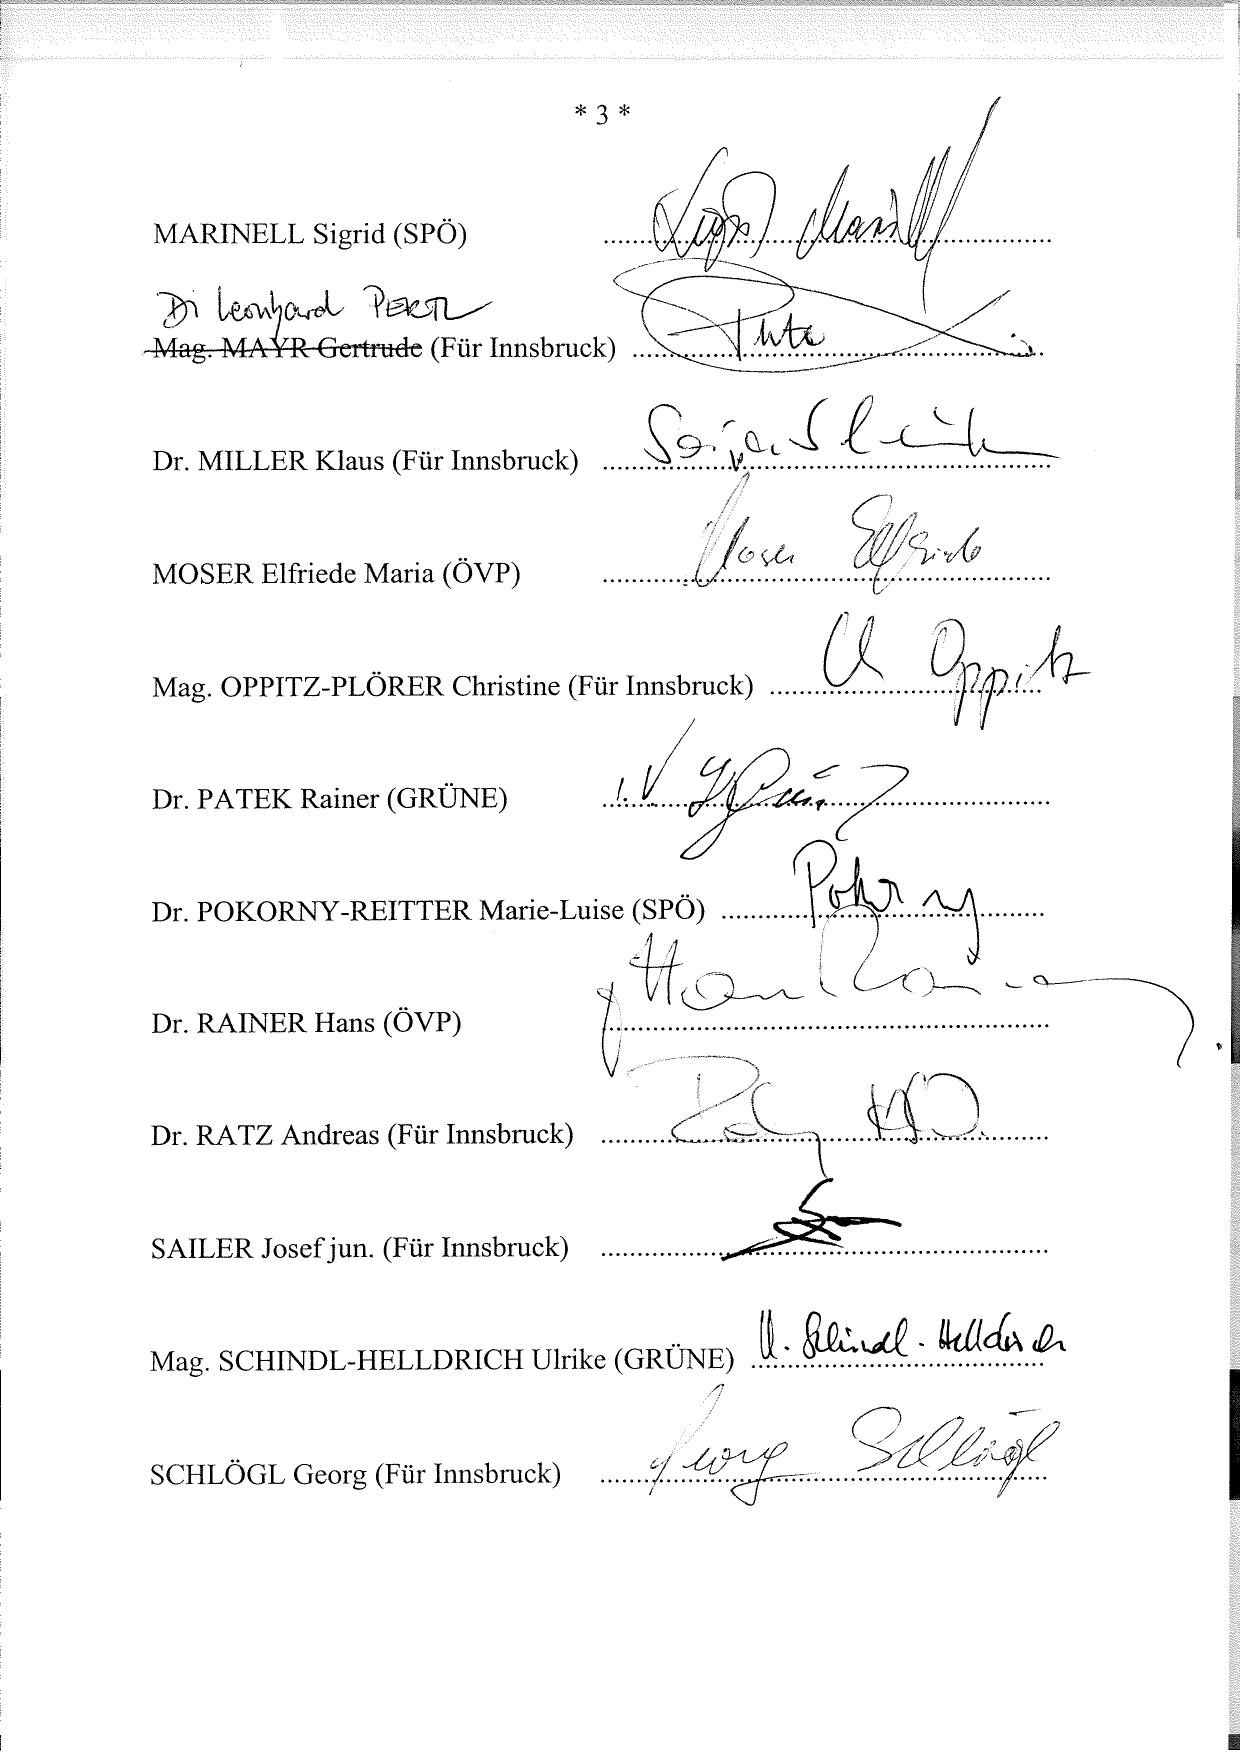 * 3 *
MARINELL Sigrid (SPÖ) Sigrid Marinell
DI Leonhard PERTL
Mag. MAYR Gertrude (Für Innsbruck)
Dr. MILLER Klaus (Für Innsbruck)
MOSER Elfriede Maria (ÖVP) Moser Elfriede
Mag. OPPITZ-PLÖRER Christine (Für Innsbruck) Oppitz
Dr. PATEK Rainer (GRÜNE) i.V.
Dr. POKORNY-REITTER Marie-Luise (SPÖ) Pokorny
Dr. RAINER Hans (ÖVP) Hans Rainer
Dr. RATZ Andreas (Für Innsbruck)
SAILER Josef jun. (Für Innsbruck)
Mag. SCHINDL-HELLDRICH Ulrike (GRÜNE) U. Schindl-Helldrich
SCHLÖGL Georg (Für Innsbruck) Georg Schlögl